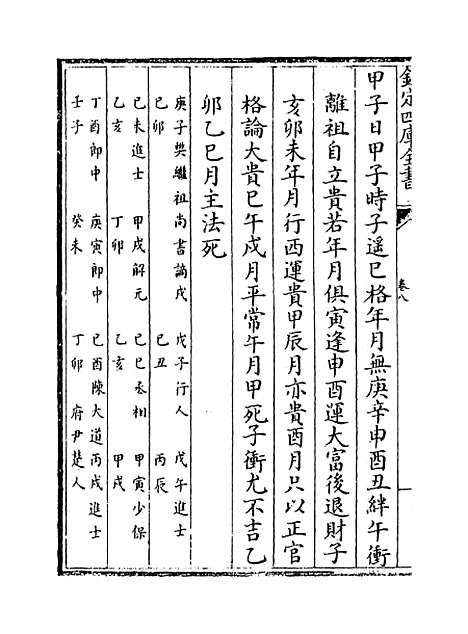 欽定四庫全書
卷八
甲子日甲子時子遥巳格年月無庚辛申酉丑絆午衝
離祖自立貴若年月俱寅逢申酉運大富後退財子
亥卯未年月行西運貴甲辰月亦貴酉月只以正官
格論大貴巳午戌月平常午月甲死子衝尤不吉乙
卯乙巳月主法死
庚子樊繼祖尚書謫戍 戊子行人 戊午進士
己卯 己丑 丙辰
己未進士 甲戌解元 己巳丞相 甲寅少保
乙亥 丁卯 乙亥 甲戌
丁酉郎中 庚寅郎中 己酉陳大道丙戌進士
壬子 癸未 丁卯 府尹楚人